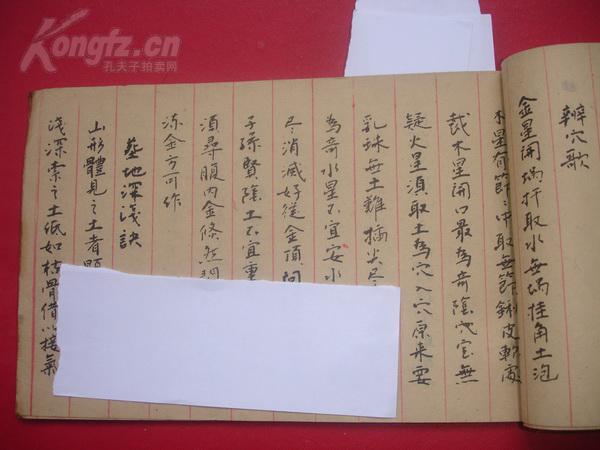 辨穴歌
金星開堝扦取水無堝挂角土泡
木星有節節中取無節皮軟處
裁木星開口最為奇陰穴定無
疑火星須取土為穴入穴原來要
乳球無土難插尖
為奇水星不宜安水
尽消滅好從金頂
子孫賢陰土不宜重
須尋順內金條
金方可作
墓地深淺訣
山形體見之土者
淺深索之土低如枯骨借以接氣
Kongfz.cn
孔夫子拍卖网